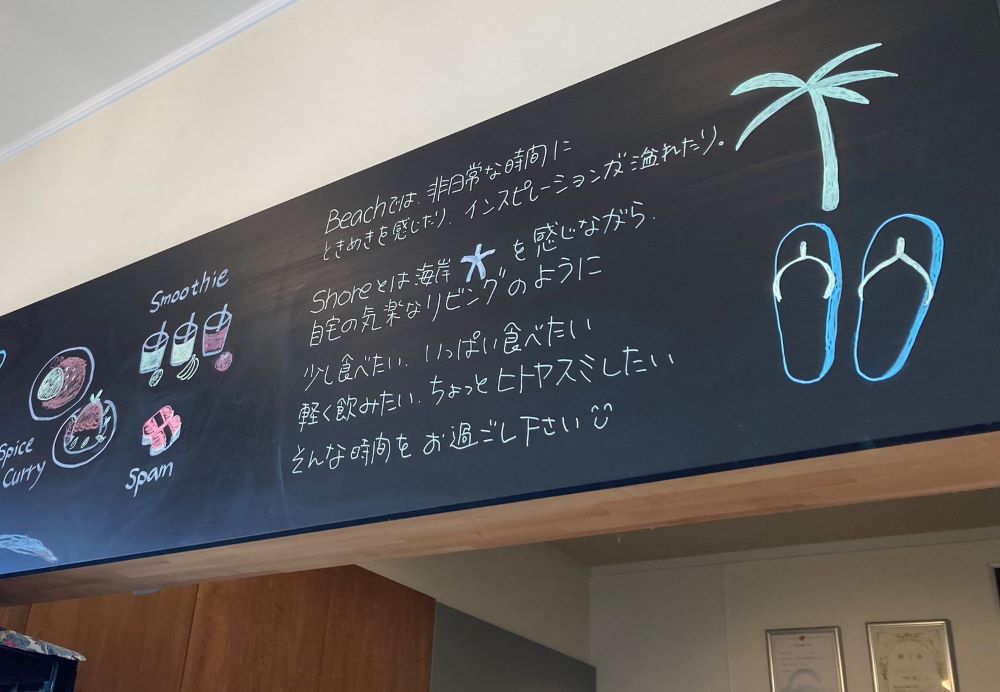 Beachでは、非日常な時間に
ときめきを感じたり、インスピレーションが溢れたり。
Shoreとは海岸を感じながら、
自宅の気楽なリビングのように
少し食べたい、いっぱい食べたい
軽く飲みたい、ちょっとヒトヤスミしたい
そんな時間をお過ごし下さい
Smoothie
Spice
Curry
Spam